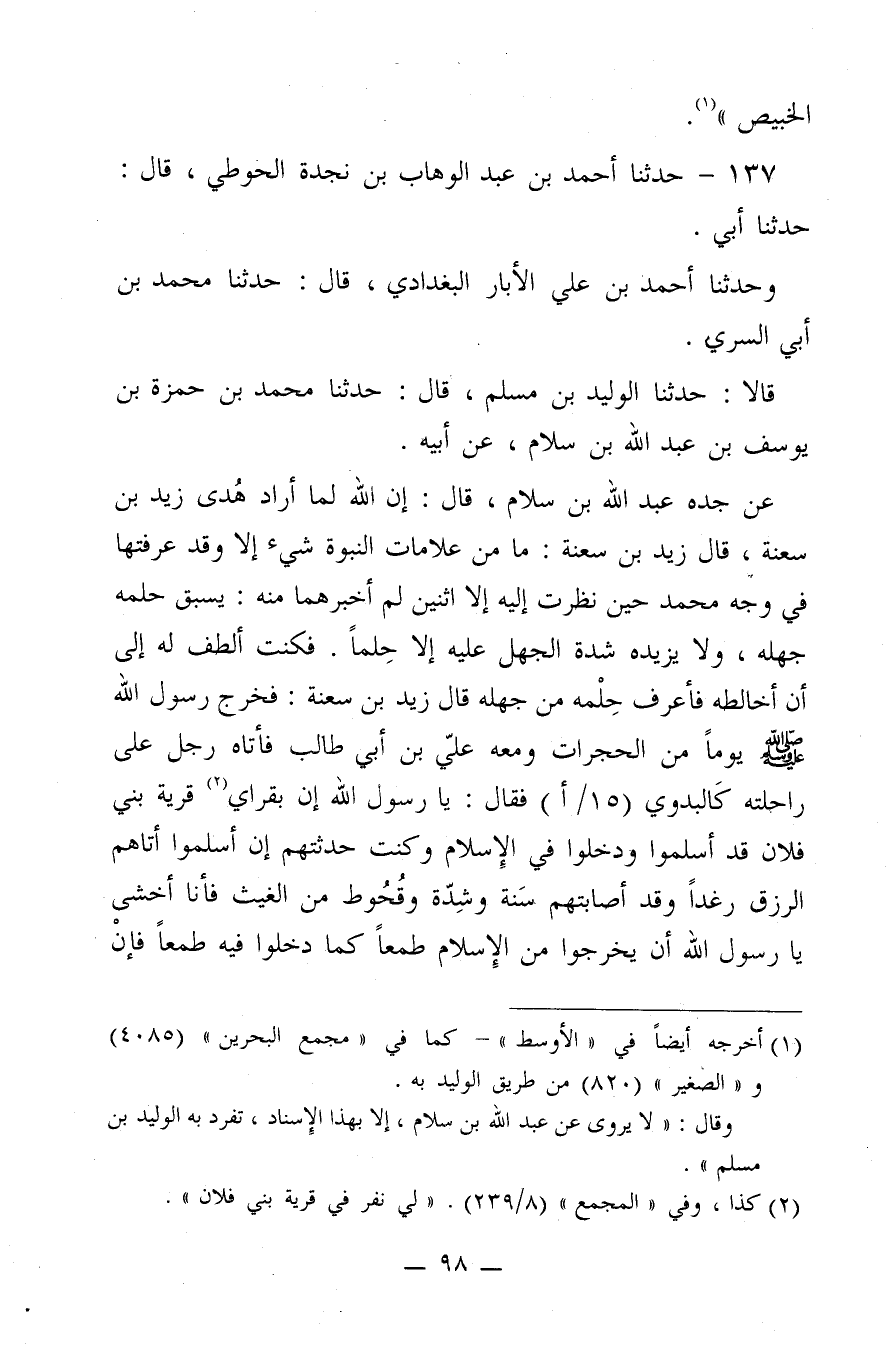 الخبيص »(١).
١٣٧ - حدثنا أحمد بن عبد الوهاب بن نجدة الحوطي ، قال :
حدثنا أبي .
وحدثنا أحمد بن علي الأبار البغدادي ، قال : حدثنا محمد بن
أبي السري .
قالا : حدثنا الوليد بن مسلم ، قال : حدثنا محمد بن حمزة بن
يوسف بن عبد الله بن سلام ، عن أبيه .
عن جده عبد الله بن سلام ، قال : إن الله لما أراد هُدى زيد بن
سعنة ، قال زيد بن سعنة : ما من علامات النبوة شيء إلا وقد عرفتها
في وجه محمد حين نظرت إليه إلا اثنين لم أخبرهما منه : يسبق حلمه
جهله ، ولا يزيده شدة الجهل عليه إلا حِلماً . فكنت ألطف له إلى
أن أخالطه فأعرف حِلْمه من جهله قال زيد بن سعنة : فخرج رسول الله
ﷺ يوماً من الحجرات ومعه عليّ بن أبي طالب فأتاه رجل على
راحلته كَالبدوي (١٥/ أ ) فقال : يا رسول الله إن بقراي(٢) قرية بني
فلان قد أسلموا ودخلوا في الإِسلام وكنت حدثتهم إن أسلموا أتاهم
الرزق رغداً وقد أصابتهم سَنة وشِدّة وقُحُوط من الغيث فأنا أخشى
يا رسول الله أن يخرجوا من الإِسلام طمعاً كما دخلوا فيه طمعاً فإنْ
(١) أخرجه أيضاً في « الأوسط » - كما في « مجمع البحرين » (٤٠٨٥)
و « الصغير » (٨٢٠) من طريق الوليد به .
وقال : « لا يروى عن عبد الله بن سلام ، إلا بهذا الإِسناد ، تفرد به الوليد بن
مسلم » .
(٢) كذا ، وفي « المجمع » (٢٣٩/٨) . « لي نفر في قرية بني فلان » .
— ٩٨ —